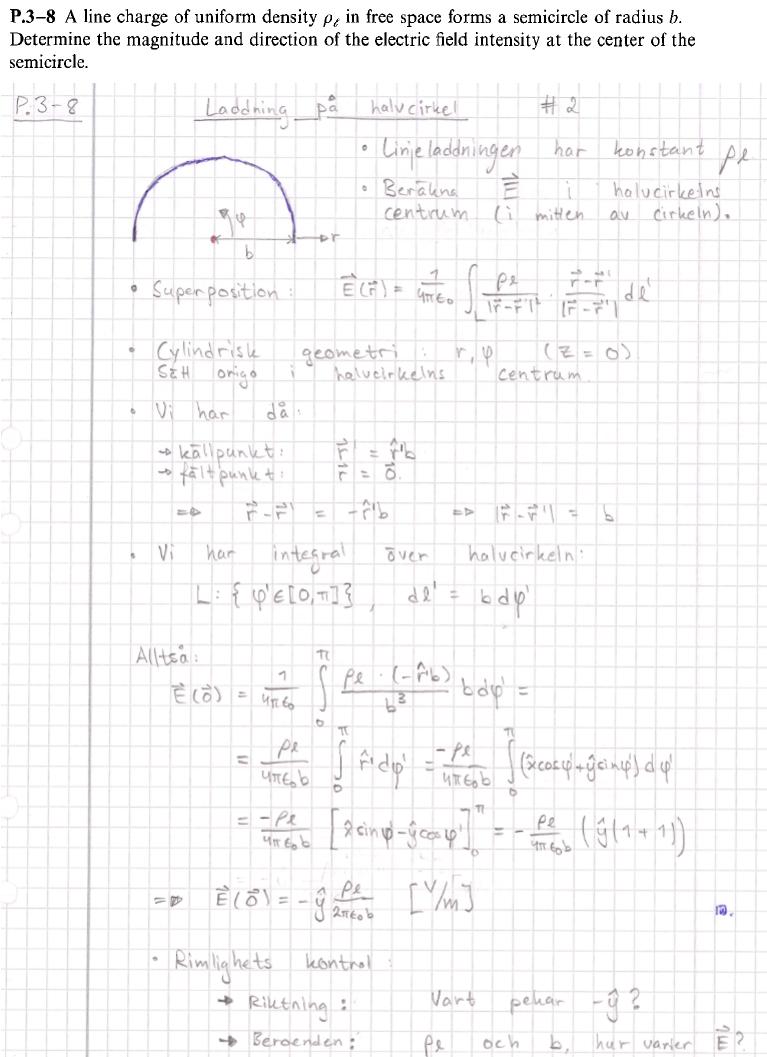 P.3–8 A line charge of uniform density ρℓ in free space forms a semicircle of radius b.
Determine the magnitude and direction of the electric field intensity at the center of the
semicircle.
P.3-8 Laddning på halvcirkel #2
• Linjeladdningen har konstant ρℓ
• Beräkna E⃗ i halvcirkelns
centrum (i mitten av cirkeln).
φ
r
b
• Superposition: E⃗(r⃗) = 1/(4πε₀) ∫_L ρℓ/|r⃗-r⃗'|² · (r⃗-r⃗')/|r⃗-r⃗'| dℓ'
• Cylindrisk geometri: r, φ (z = 0)
Sätt origo i halvcirkelns centrum.
• Vi har då:
→ källpunkt: r⃗' = r̂'b
→ fältpunkt: r⃗ = 0⃗.
=> r⃗-r⃗' = -r̂'b => |r⃗-r⃗'| = b
• Vi har integral över halvcirkeln:
L: { φ'∈[0,π] }, dℓ' = b dφ'
Alltså:
E⃗(0⃗) = 1/(4πε₀) ∫₀^π ρℓ·(-r̂'b)/b³ b dφ' =
= ρℓ/(4πε₀b) ∫₀^π r̂'dφ' = -ρℓ/(4πε₀b) ∫₀^π (x̂cosφ'+ŷsinφ') dφ'
= -ρℓ/(4πε₀b) [x̂sinφ'-ŷcosφ']₀^π = - ρℓ/(4πε₀b) (ŷ(1+1))
=> E⃗(0⃗) = -ŷ ρℓ/(2πε₀b) [V/m]
• Rimlighets kontrol:
→ Riktning: Vart pekar -ŷ?
→ Beroenden: ρℓ och b, hur varier E⃗?